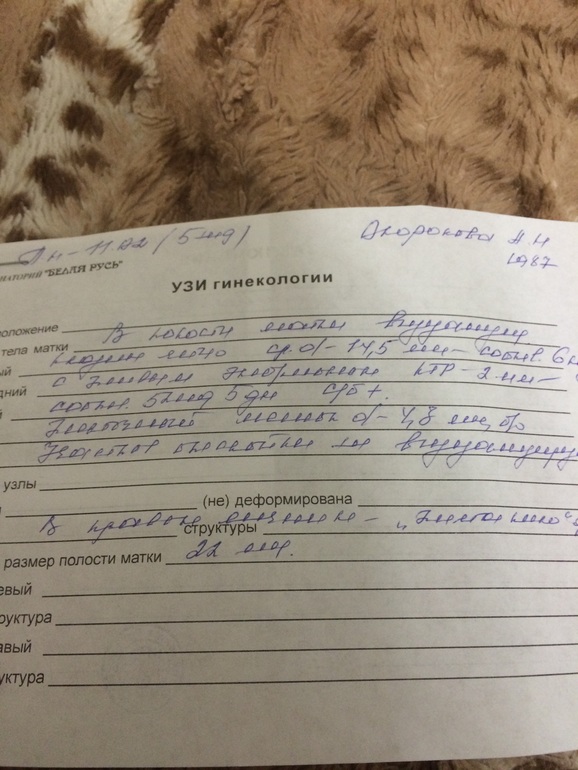 Дн-11.02 (5 нед)
Скоракова А.Н
1987
НАТОРИЙ "БЕЛАЯ РУСЬ"
УЗИ гинекологии
положение
В полости матки визуализир
тела матки
плодное яйцо ср. d- 14,5 мм- соотв. 6 н
ый
с живым эмбрионом КТР- 2 мм-
дний
соотв. 5 нед 5 дн с/б+.
й
Желточный мешок d- 4,3 мм, б/о
Участков отслойки не визуализиру
узлы
(не) деформирована
В правом яичнике - „Желтое тело“
структуры
размер полости матки 22 мм.
евый
руктура
авый
уктура